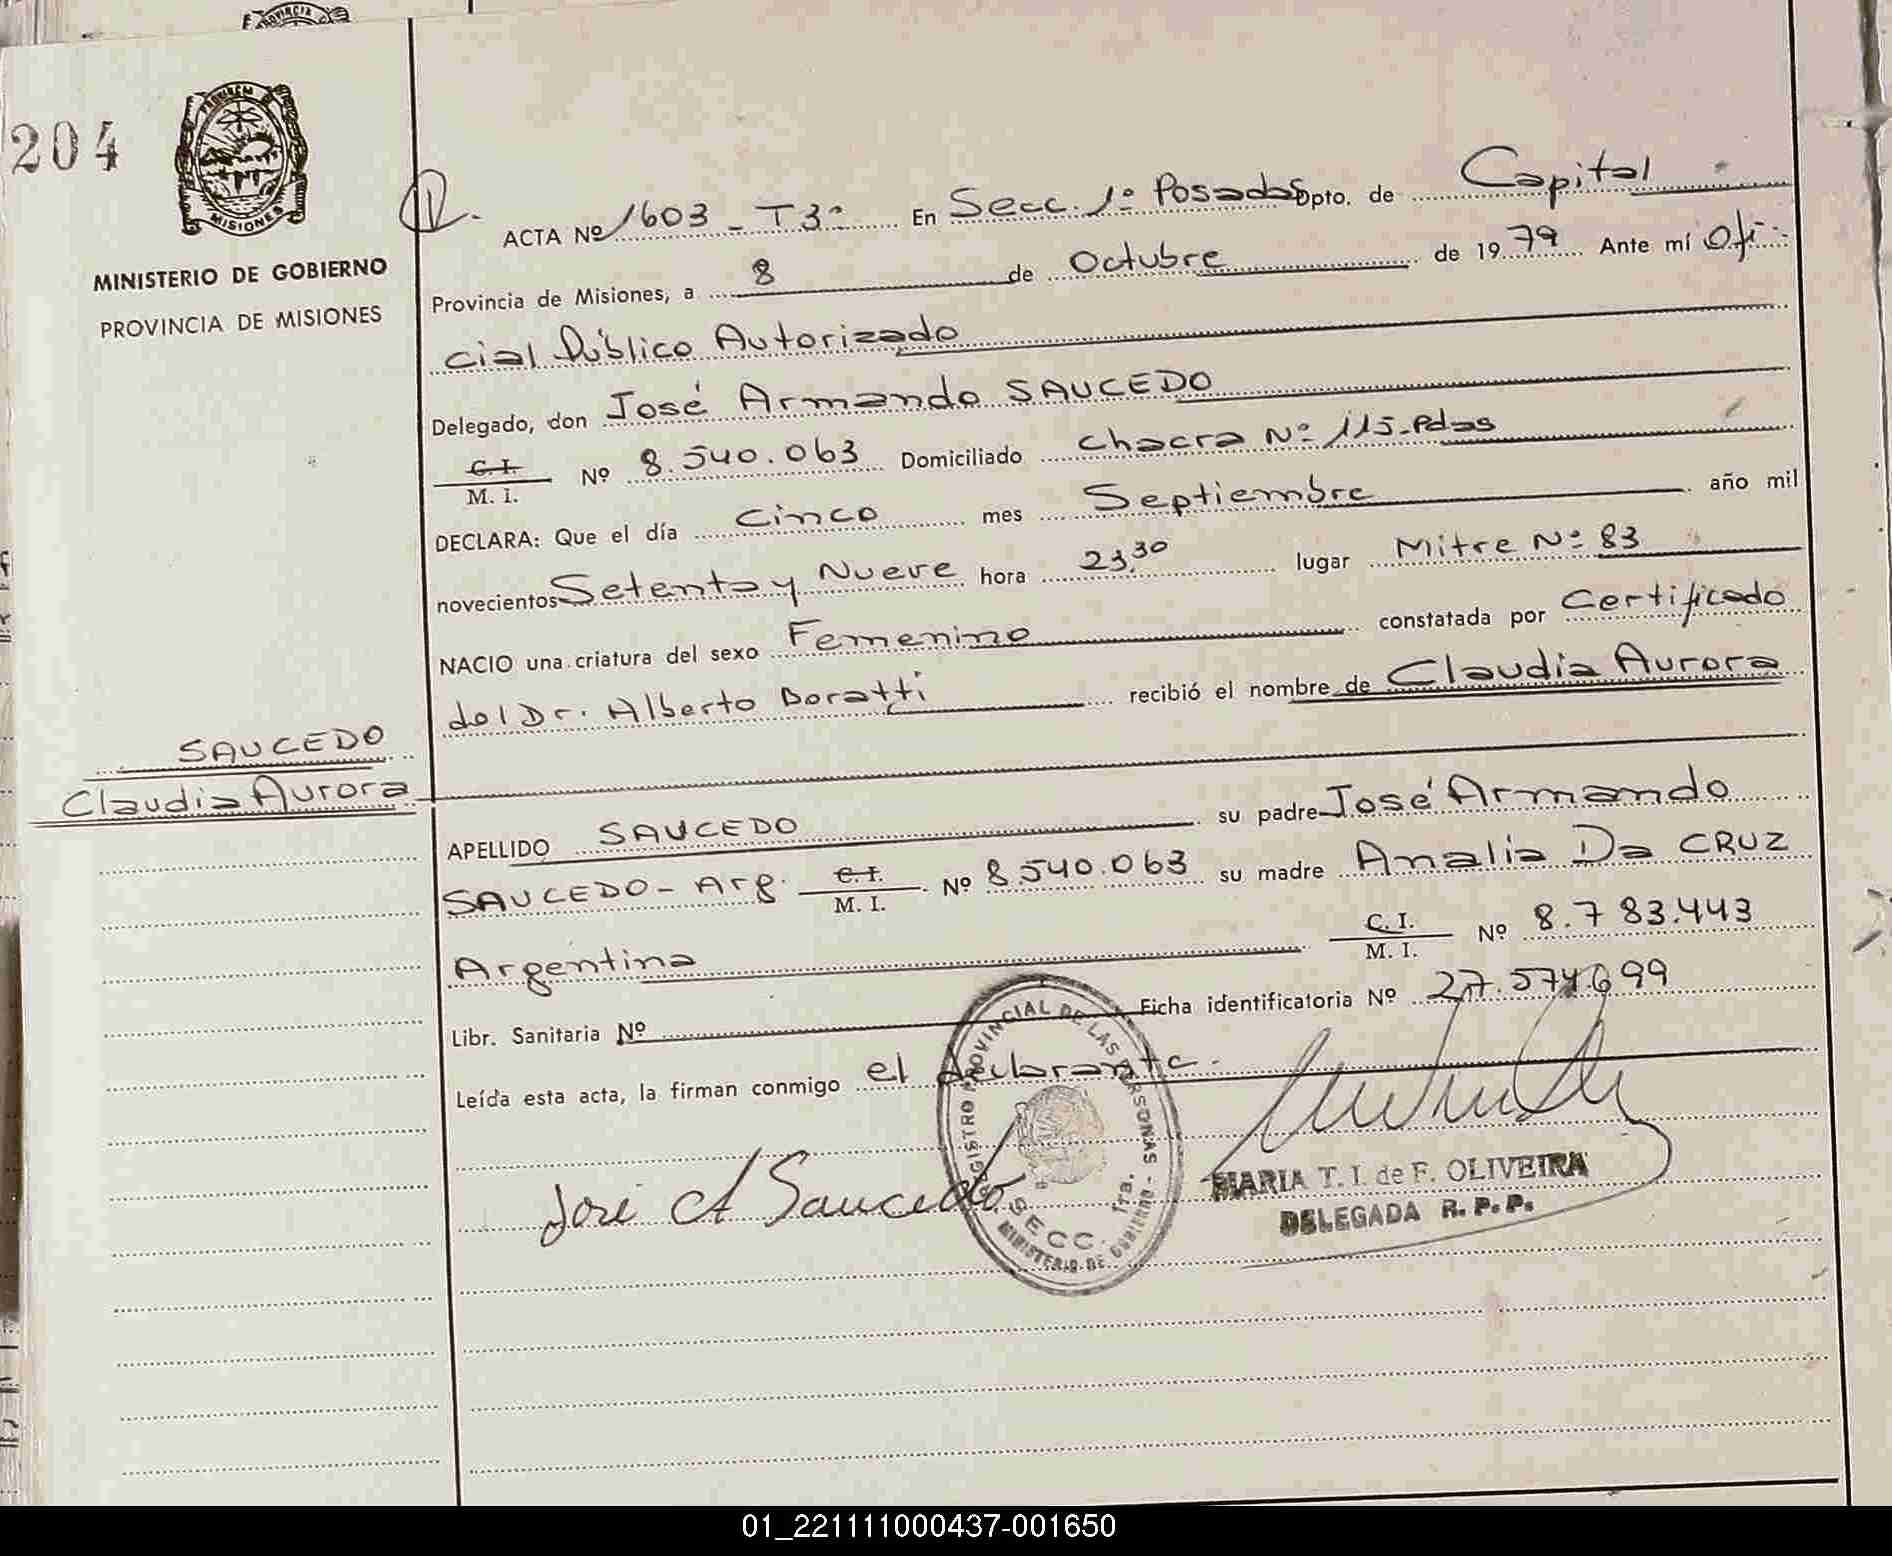 PROVINCIA
204
PROVINCIA
MISIONES
MINISTERIO DE GOBIERNO
PROVINCIA DE MISIONES
ACTA Nº 1603 - T3º En Secc. 1º Posadas Dpto. de Capital
Provincia de Misiones, a 8 de Octubre de 1979 Ante mí Ofi-
cial Público Autorizado
Delegado, don José Armando SAUCEDO
C. I.
M. I. Nº 8.540.063 Domiciliado Chacra Nº 115-Pdas
DECLARA: Que el día Cinco mes Septiembre año mil
novecientos Setenta y Nueve hora 23,30 lugar Mitre Nº 83
NACIO una criatura del sexo Femenino constatada por Certificado
del Dr. Alberto Boratti recibió el nombre de Claudia Aurora
SAUCEDO
Claudia Aurora
APELLIDO SAUCEDO su padre José Armando
SAUCEDO - Arg. C. I.
M. I. Nº 8.540.063 su madre Analia Da CRUZ
Argentina C. I.
M. I. Nº 8.783.443
Libr. Sanitaria Nº Ficha identificatoria Nº 27.574.699
Leída esta acta, la firman conmigo el declarante.
José A Saucedo
REGISTRO PROVINCIAL DE LAS PERSONAS
SECC. 1ra.
MINISTERIO DE GOBIERNO
MARIA T. I. de F. OLIVEIRA
DELEGADA R. P. P.
01_221111000437-001650